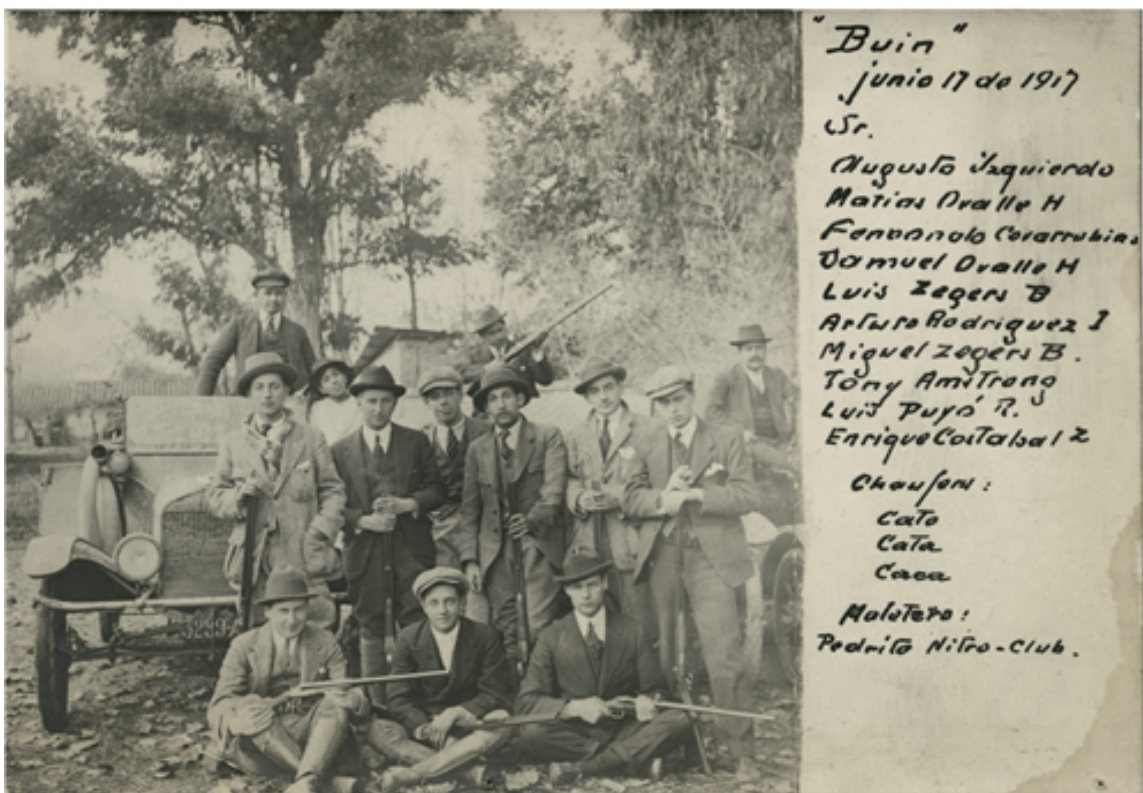 "Buin"
junio 17 de 1917
Sr.
Augusto Izquierdo
Matias Ovalle H
Fernando Covarrubias
Samuel Ovalle H
Luis Zegers B
Arturo Rodriguez I
Miguel Zegers B.
Tony Amstrong
Luis Puyó R.
Enrique Costabal Z
Chaufers:
Cato
Cata
Caca
Malutero:
Pedrito Nitro-Club.